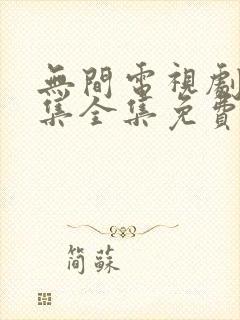 無間電視劇
集全集免費
簡蘇